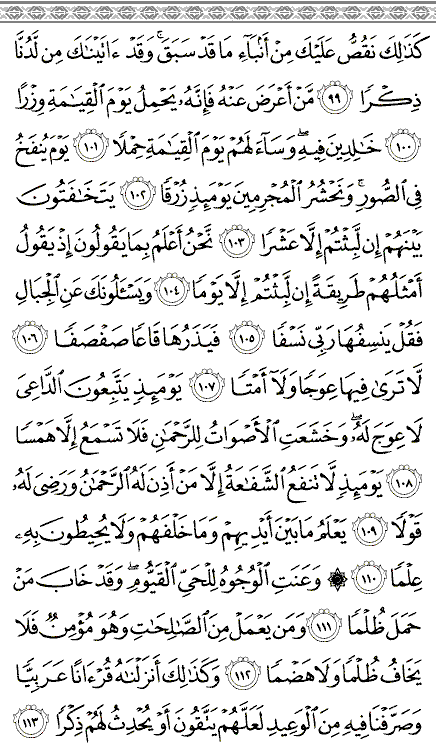 كَذَٰلِكَ نَقُصُّ عَلَيْكَ مِنْ أَنۢبَآءِ مَا قَدْ سَبَقَ ۚ وَقَدْ ءَاتَيْنَٰكَ مِن لَّدُنَّا
ذِكْرًا ۝٩٩ مَّنْ أَعْرَضَ عَنْهُ فَإِنَّهُۥ يَحْمِلُ يَوْمَ ٱلْقِيَٰمَةِ وِزْرًا
۝١٠٠ خَٰلِدِينَ فِيهِ ۖ وَسَآءَ لَهُمْ يَوْمَ ٱلْقِيَٰمَةِ حِمْلًا ۝١٠١ يَوْمَ يُنفَخُ
فِى ٱلصُّورِ ۚ وَنَحْشُرُ ٱلْمُجْرِمِينَ يَوْمَئِذٍ زُرْقًا ۝١٠٢ يَتَخَٰفَتُونَ
بَيْنَهُمْ إِن لَّبِثْتُمْ إِلَّا عَشْرًا ۝١٠٣ نَّحْنُ أَعْلَمُ بِمَا يَقُولُونَ إِذْ يَقُولُ
أَمْثَلُهُمْ طَرِيقَةً إِن لَّبِثْتُمْ إِلَّا يَوْمًا ۝١٠٤ وَيَسْـَٔلُونَكَ عَنِ ٱلْجِبَالِ
فَقُلْ يَنسِفُهَا رَبِّى نَسْفًا ۝١٠٥ فَيَذَرُهَا قَاعًا صَفْصَفًا ۝١٠٦
لَّا تَرَىٰ فِيهَا عِوَجًا وَلَآ أَمْتًا ۝١٠٧ يَوْمَئِذٍ يَتَّبِعُونَ ٱلدَّاعِىَ
لَا عِوَجَ لَهُۥ ۖ وَخَشَعَتِ ٱلْأَصْوَاتُ لِلرَّحْمَٰنِ فَلَا تَسْمَعُ إِلَّا هَمْسًا
۝١٠٨ يَوْمَئِذٍ لَّا تَنفَعُ ٱلشَّفَٰعَةُ إِلَّا مَنْ أَذِنَ لَهُ ٱلرَّحْمَٰنُ وَرَضِىَ لَهُۥ
قَوْلًا ۝١٠٩ يَعْلَمُ مَا بَيْنَ أَيْدِيهِمْ وَمَا خَلْفَهُمْ وَلَا يُحِيطُونَ بِهِۦ
عِلْمًا ۝١١٠ ۞ وَعَنَتِ ٱلْوُجُوهُ لِلْحَىِّ ٱلْقَيُّومِ ۖ وَقَدْ خَابَ مَنْ
حَمَلَ ظُلْمًا ۝١١١ وَمَن يَعْمَلْ مِنَ ٱلصَّٰلِحَٰتِ وَهُوَ مُؤْمِنٌ فَلَا
يَخَافُ ظُلْمًا وَلَا هَضْمًا ۝١١٢ وَكَذَٰلِكَ أَنزَلْنَٰهُ قُرْءَانًا عَرَبِيًّا
وَصَرَّفْنَا فِيهِ مِنَ ٱلْوَعِيدِ لَعَلَّهُمْ يَتَّقُونَ أَوْ يُحْدِثُ لَهُمْ ذِكْرًا ۝١١٣